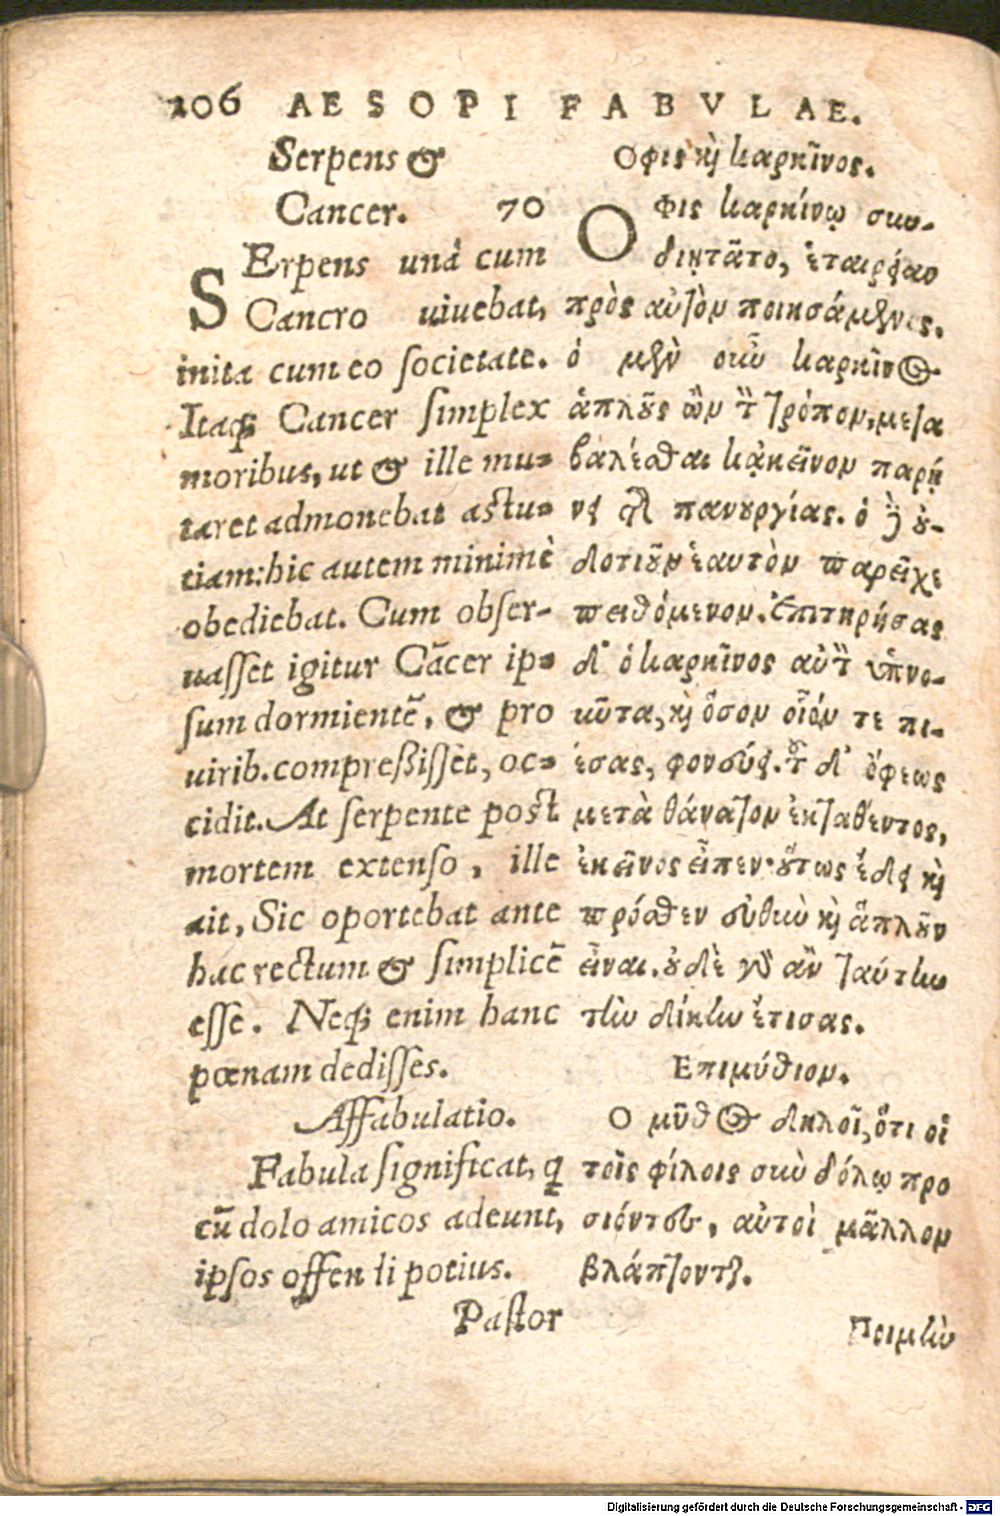 106 AESOPI FABVLAE.
Serpens &
Cancer. 70
SErpens unà cum
Cancro uiuebat,
inita cum eo societate.
Itaq; Cancer simplex
moribus, ut & ille mu-
taret admonebat astu-
tiam: hic autem minimè
obediebat. Cum obser-
uasset igitur Cãcer ip-
sum dormientẽ, & pro
uirib. compreßisset, oc-
cidit. At serpente post
mortem extenso, ille
ait, Sic oportebat ante
hac rectum & simplicẽ
esse. Neq; enim hanc
pœnam dedisses.
Affabulatio.
Fabula significat, q
cũ dolo amicos adeunt,
ipsos offendi potius.
Pastor
Οφις καὶ καρκῖνος.
Οφις καρκίνῳ συν-
διῃτᾶτο, ἑταιρείαν
πρὸς αὐτὸν ποιησάμενος.
ὁ μὲν οὖν καρκῖνος
ἁπλοῦς ὢν τὸν τρόπον, μετα
βαλέσθαι κᾀκεῖνον παρῄ
νει τῆς πανουργίας. ὁ δὲ οὐ-
δοτιοῦν ἑαυτὸν παρεῖχε
πειθόμενον. Ἐπιτηρήσας
δ' ὁ καρκῖνος αὐτὸν ὑπνο-
ῦντα, καὶ ὅσον οἷόν τε πι-
έσας, φονεύει. τοῦ δ' ὄφεως
μετὰ θάνατον ἐκταθέντος,
ἐκεῖνος εἶπεν· οὕτως ἔδει καὶ
πρόσθεν εὐθὺν καὶ ἁπλοῦν
εἶναι. οὐδὲ γὰρ ἂν ταύτην
τὴν δίκην ἔτισας.
Επιμύθιον.
Ο μῦθος δηλοῖ, ὅτι οἱ
τοῖς φίλοις σὺν δόλῳ προ
σιόντες, αὐτοὶ μᾶλλον
βλάπτονται.
Ποιμὴν
Digitalisierung gefördert durch die Deutsche Forschungsgemeinschaft - DFG